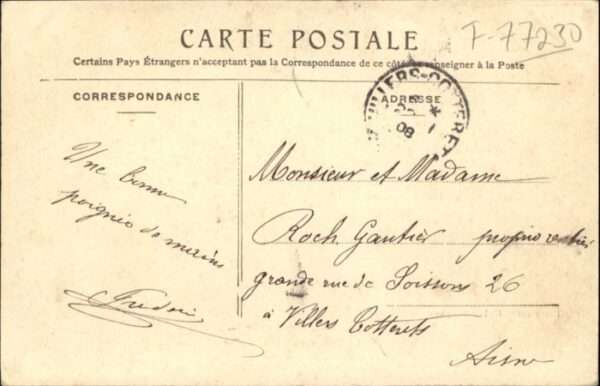 F-77230
CARTE POSTALE
Certains Pays Étrangers n'acceptant pas la Correspondance de ce côté, se renseigner à la Poste
CORRESPONDANCE
ADRESSE
VILLERS-COTTERETS
08
Une bonne
poignée de mains
Monsieur et Madame
Roch Gautier
grande rue de Soissons 26
à Villers Cotterets
Aisne